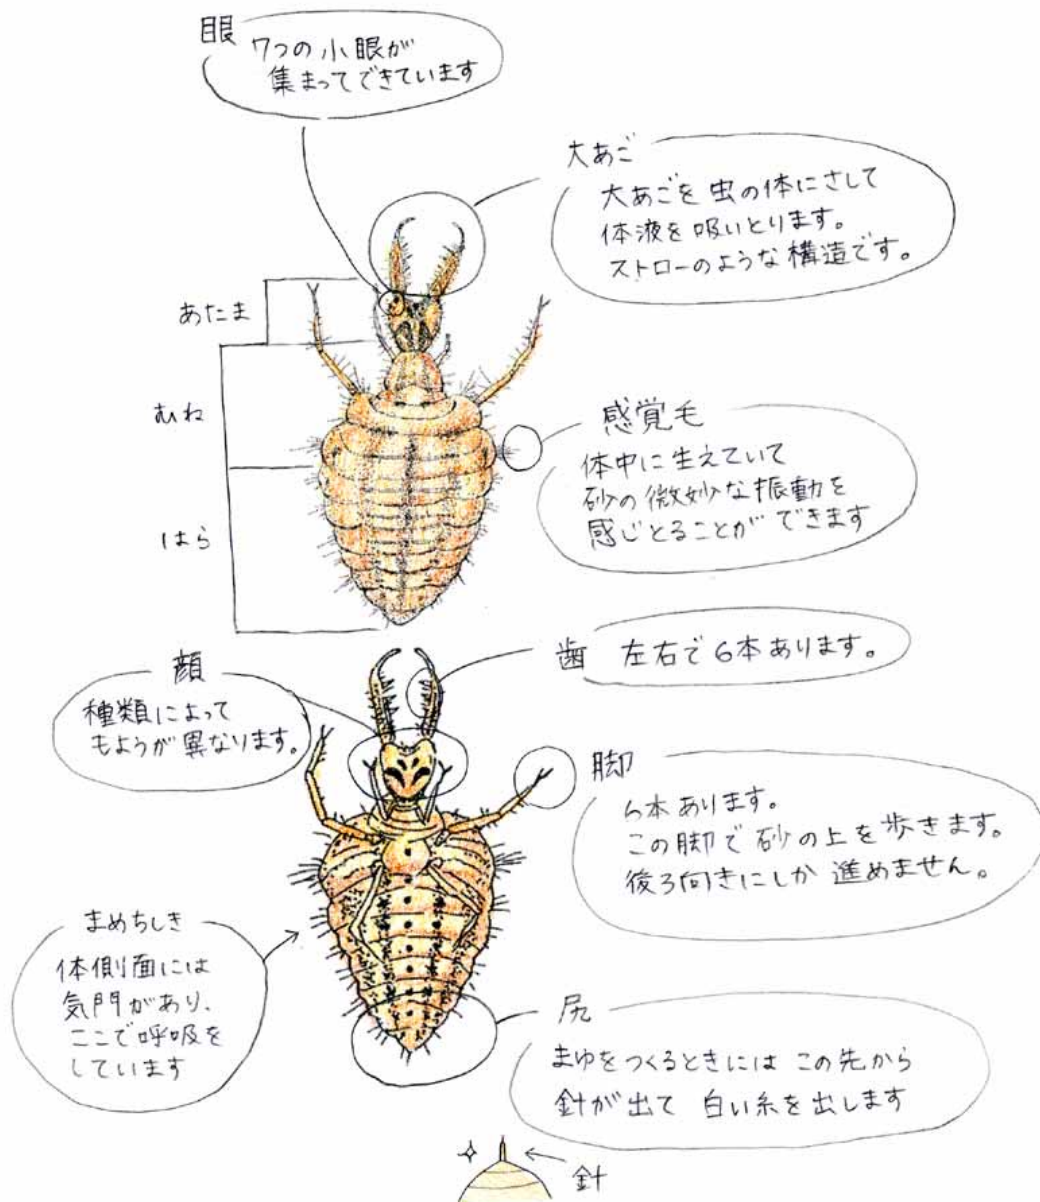 眼
7つの小眼が
集まってできています
大あご
大あごを虫の体にさして
体液を吸いとります。
ストローのような構造です。
あたま
むね
はら
感覚毛
体中に生えていて
砂の微妙な振動を
感じとることができます
歯 左右で6本あります。
顔
種類によって
もようが異なります。
脚
6本あります。
この脚で砂の上を歩きます。
後ろ向きにしか進めません。
まめちしき
体側面には
気門があり、
ここで呼吸を
しています
尻
まゆをつくるときには この先から
針が出て 白い糸を出します
針